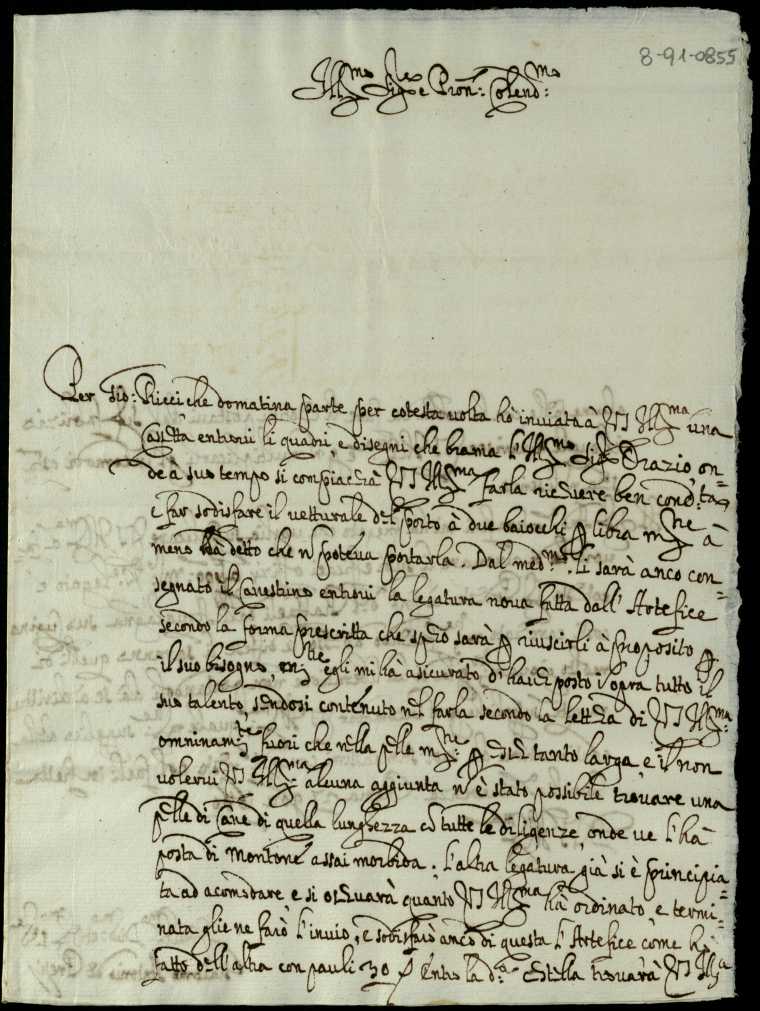 8-91-0855
Ill.mo Sig.re e Pron: Colend.mo
Per Gio: Ricci che domatina parte per cotesta volta hò inviata à VS Ill.ma una
Cassetta entrovi li quadri, e disegni che brama l'Ill.mo Sig.r Orazio, on=
de à suo tempo si compiacerà VS Ill.ma farla ricevere ben cond.ta
e far sodisfare il vetturale del porto à due baiocchi p libra m.re à
meno hà detto che n poteva portarla. Dal med.mo li sarà anco con=
segnato il Canestrino entrovi la legatura nova fatta dall' Artefice
secondo la forma prescritta che spero sarà p riuscirli à proposito p
il suo bisogno, egli mi hà asicurato d'haver posto i opra tutto il
suo talento, sendosi contenuto nel farla secondo la lettera di VS Ill.ma
omninam.te fuori che nella pelle m.re p esser tanto larga, e il non
volervi VS Ill.ma alcuna aggiunta n è stato possibile trovare una
pelle di Cane di quella lunghezza cō tutte le diligenze, onde ve l'hà
posta di Montone assai morbida: l'altra legatura già si è principia=
ta ad acomodare e si osservarà quanto VS Ill.ma hà ordinato, e termi=
nata glie ne farò l'invio, e sodisfarò anco di questa l'Artefice come hò
fatto dell'altra con pauli 30 Entro la d.a Cestella trovarà VS Ill.ma